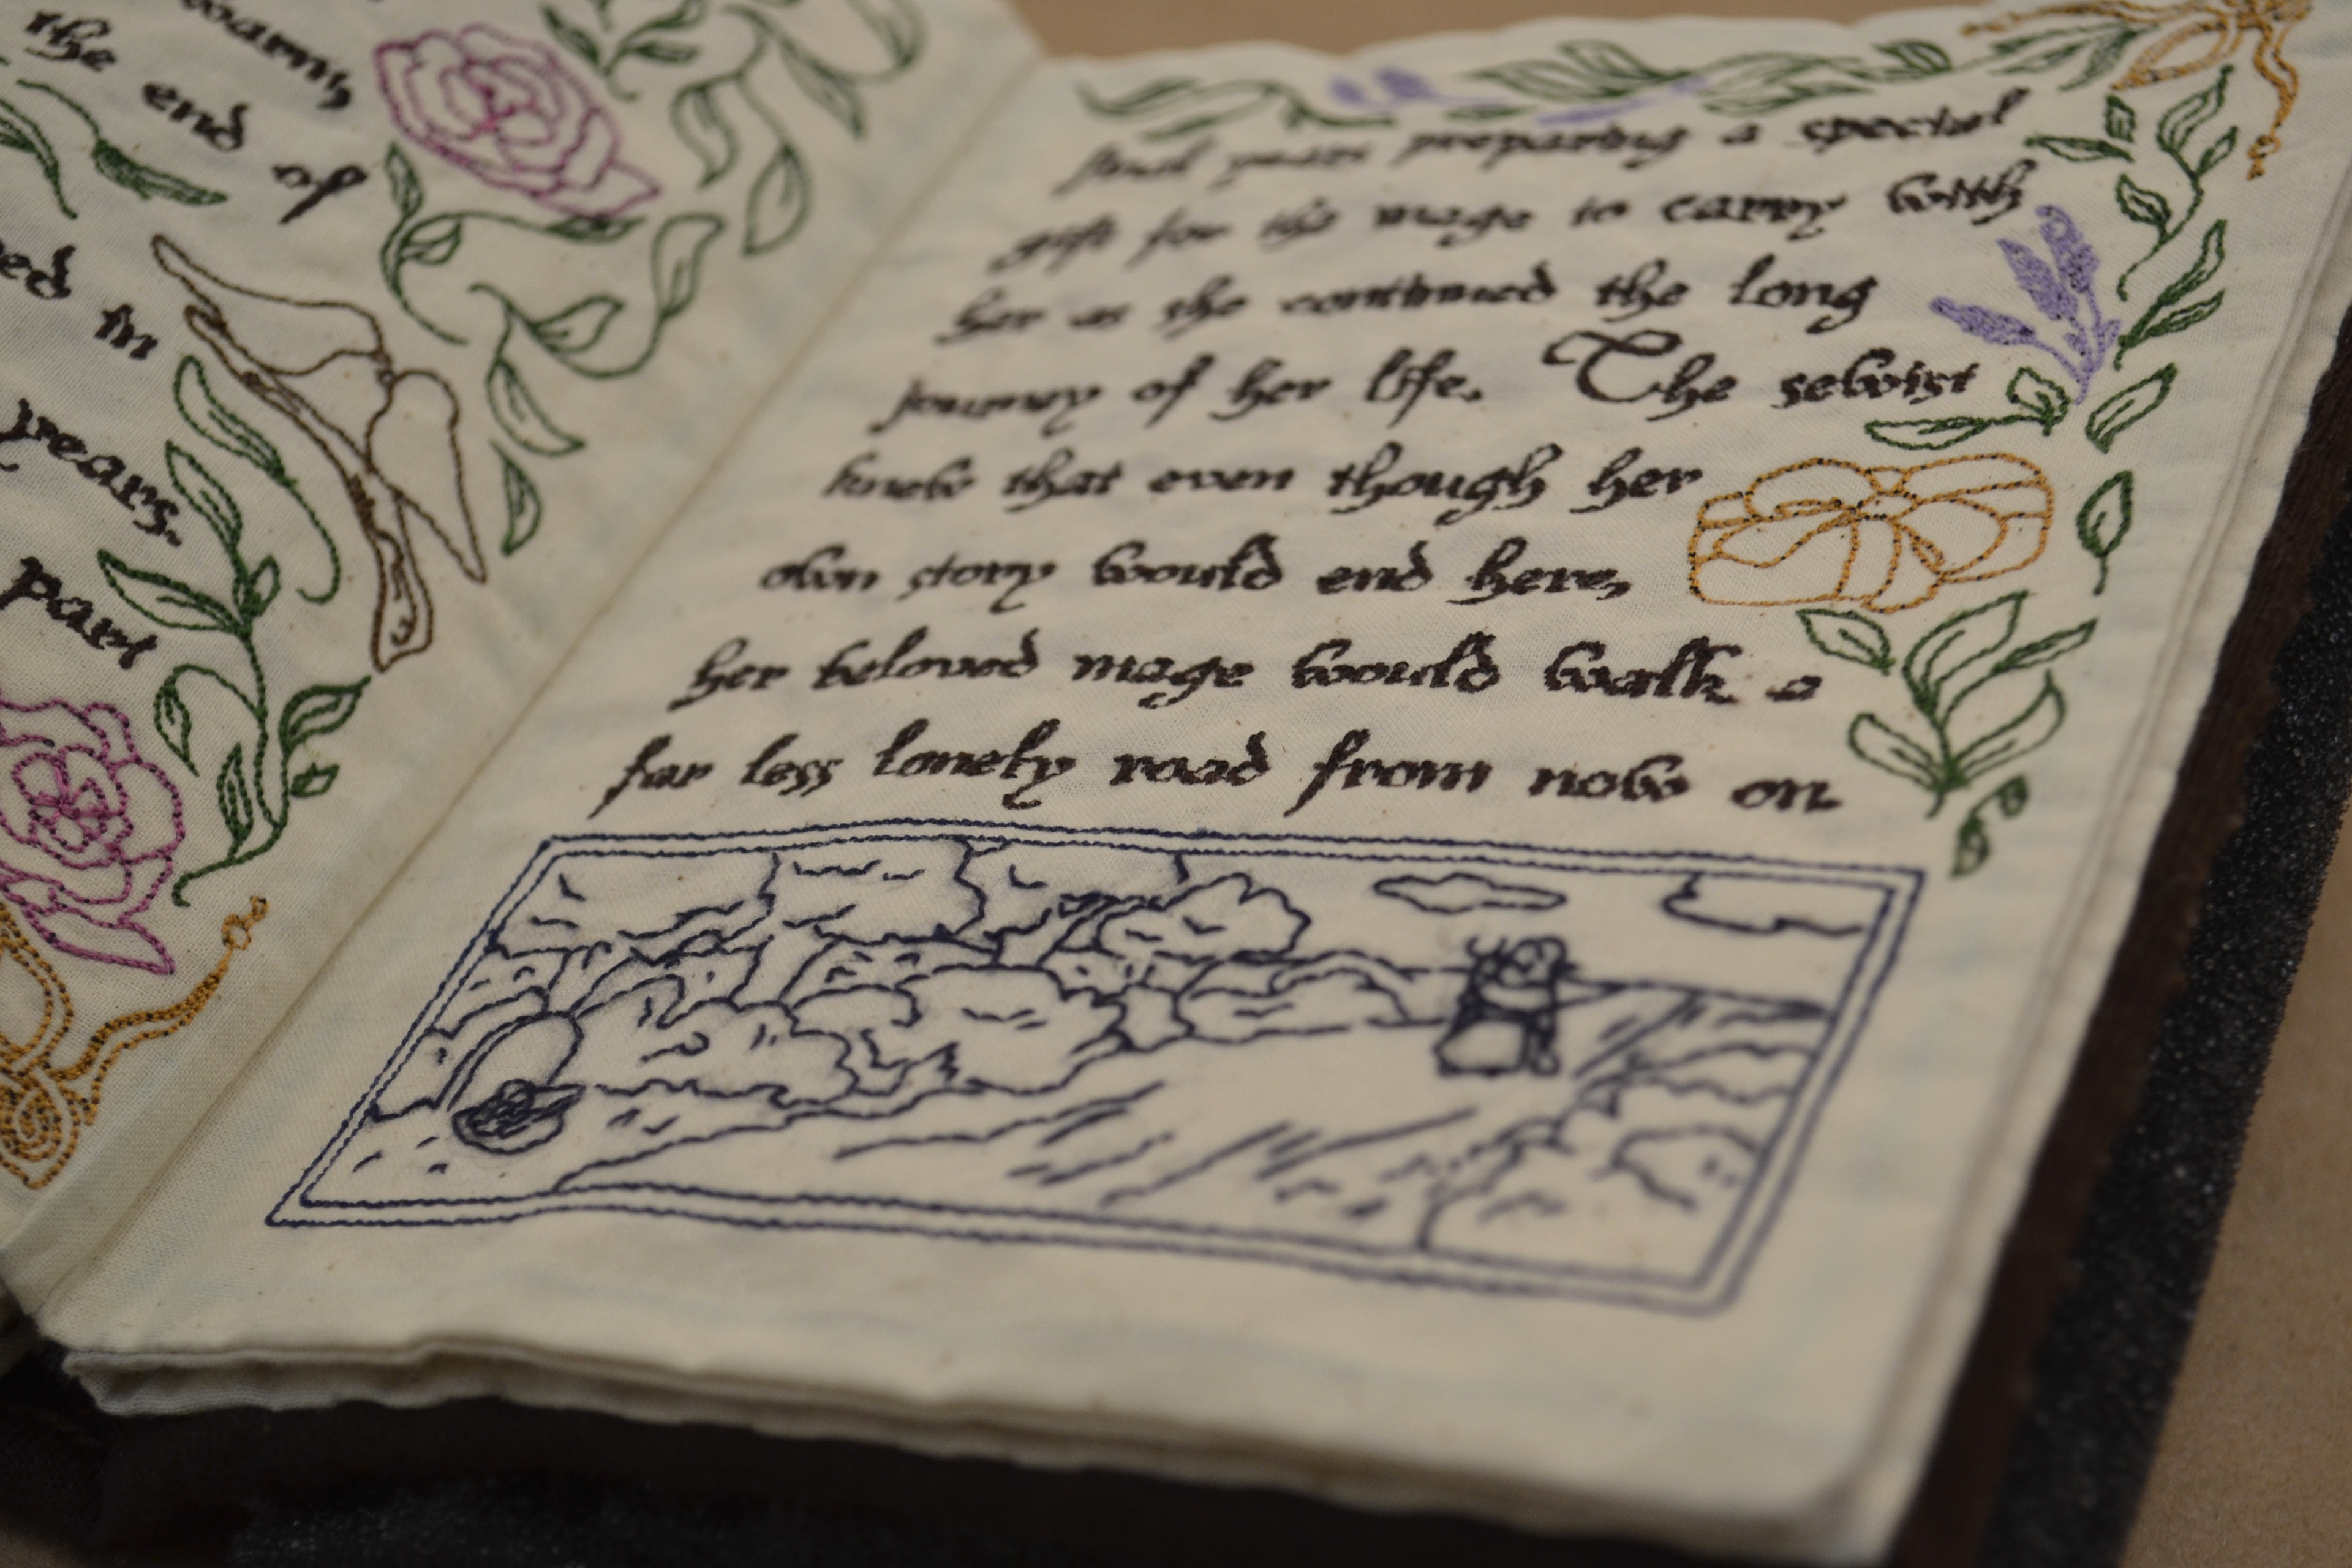 warm,
the end of
ed in
years.
part
final years preparing a special
gift for the mage to carry with
her as she continued the long
journey of her life. The sewist
knew that even though her
own story would end here,
her beloved mage would walk a
far less lonely road from now on